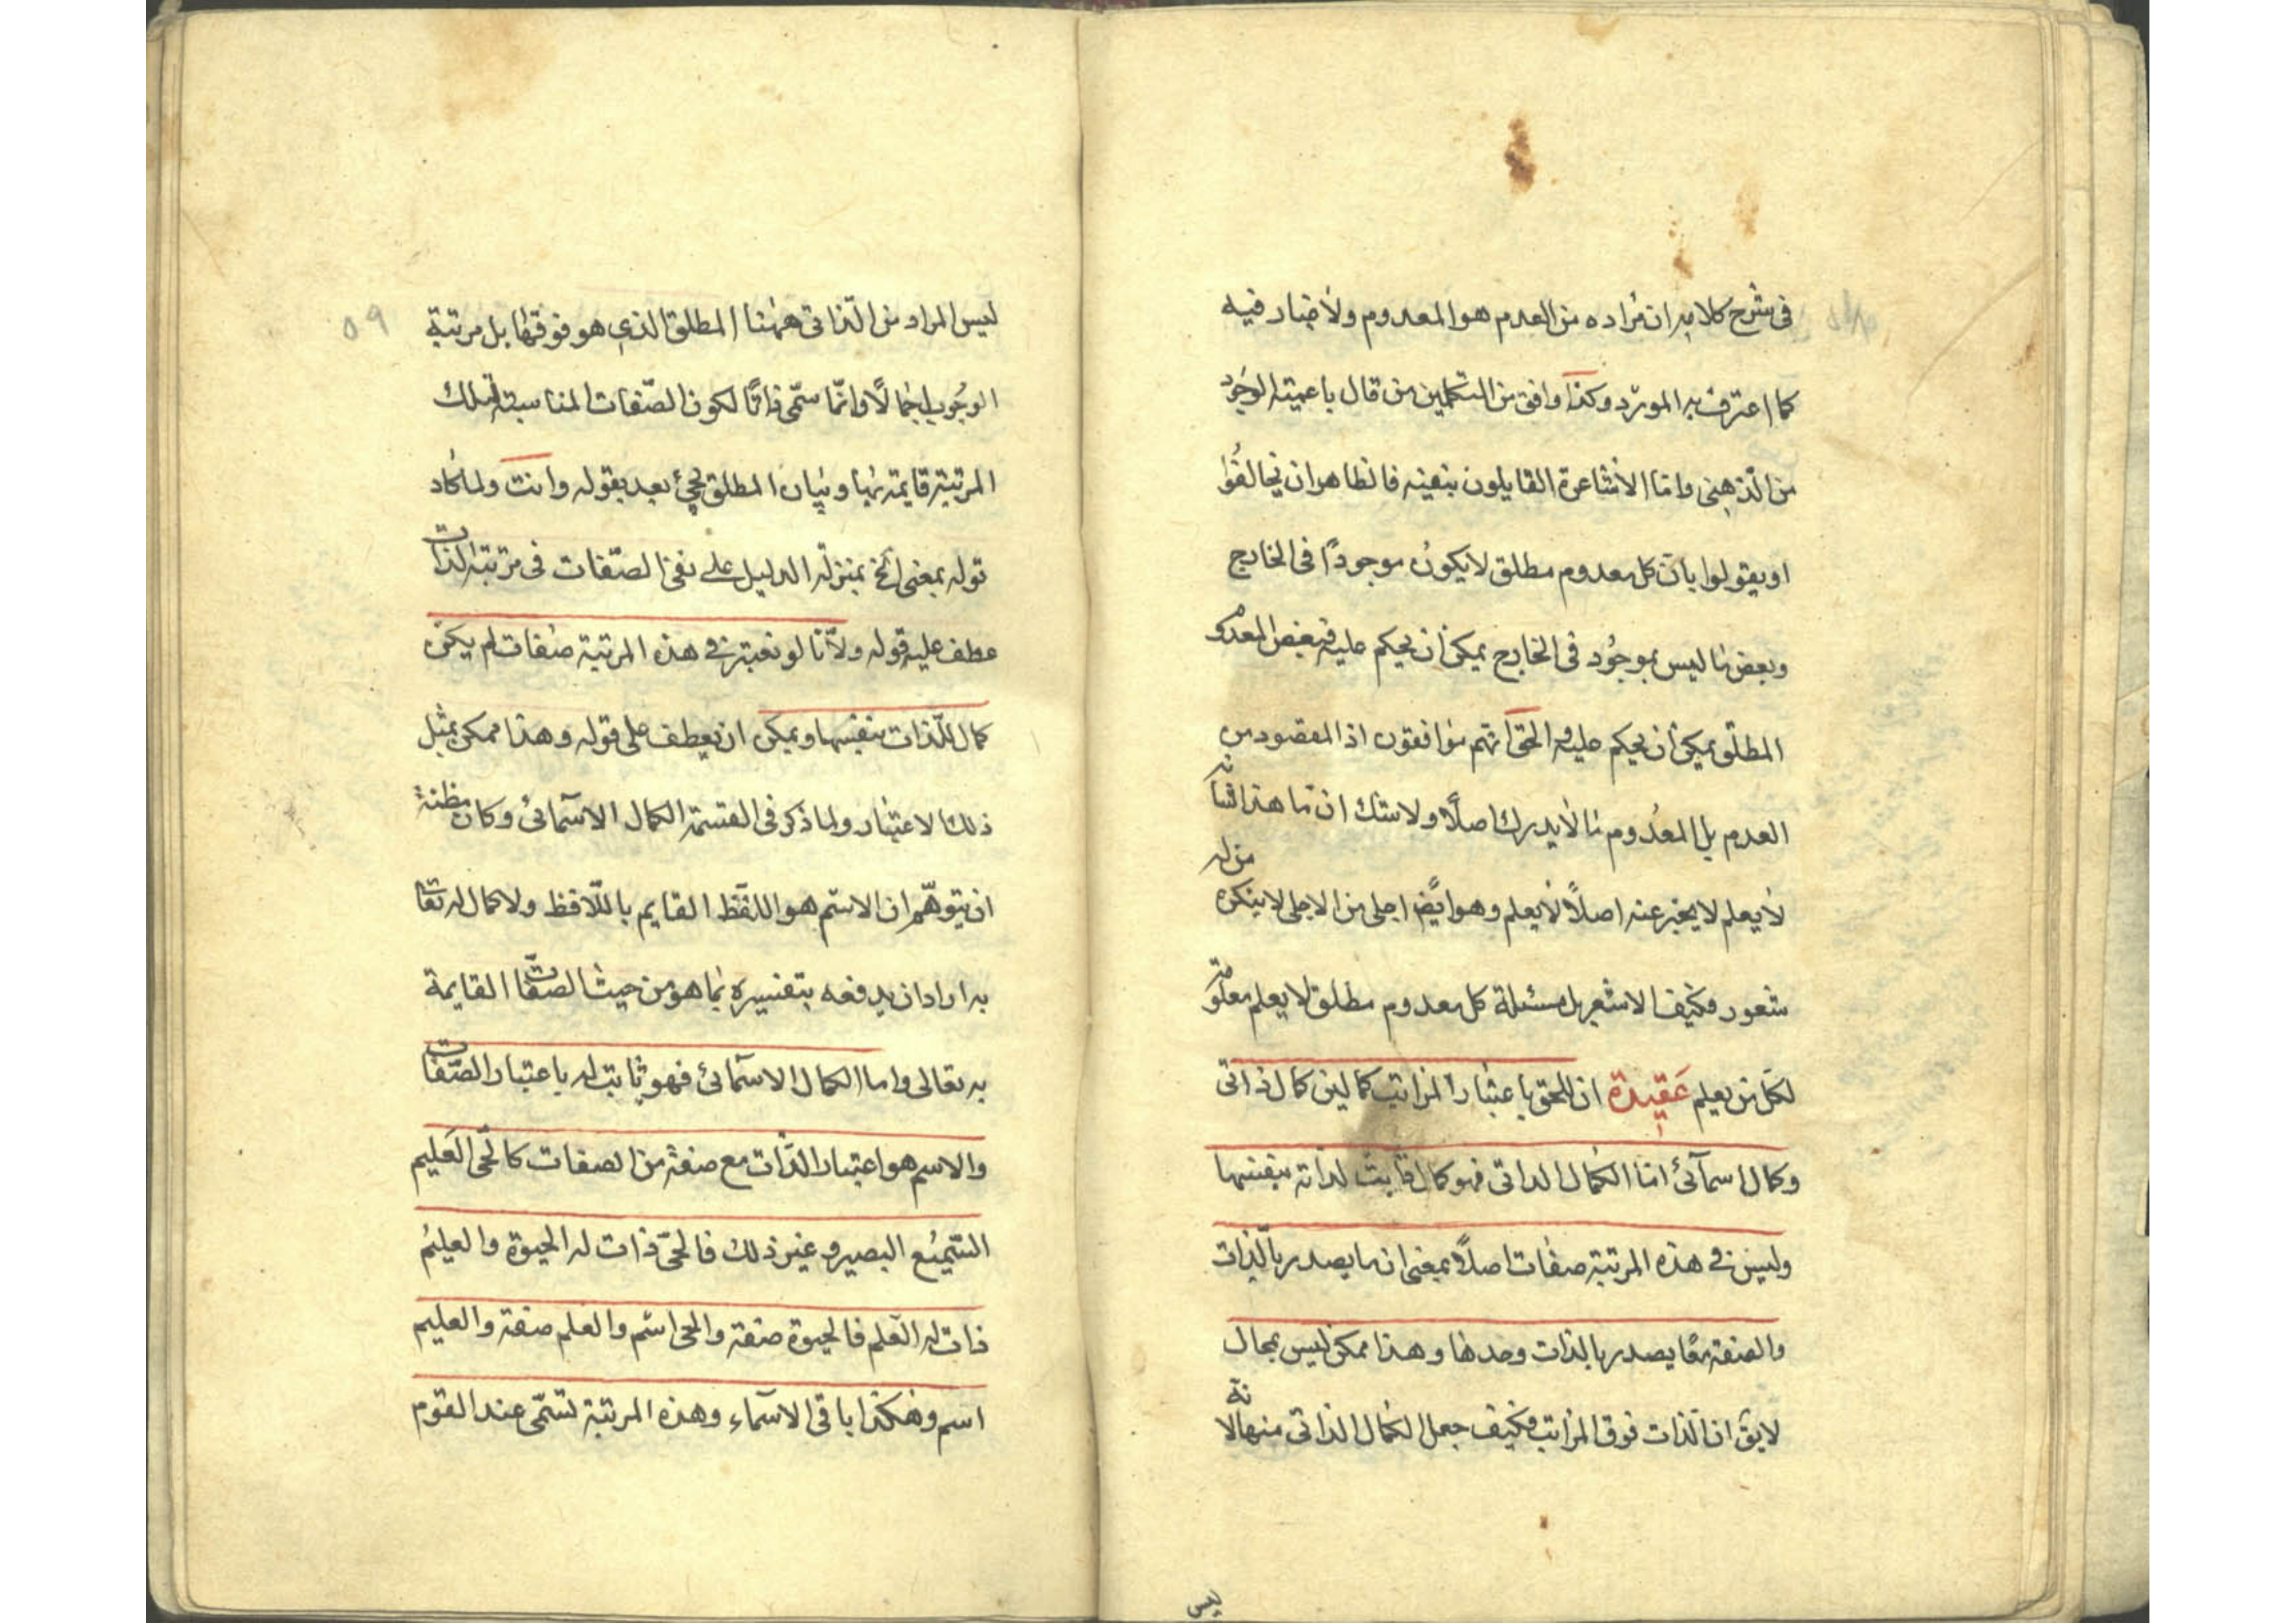 فى شرح كلامه ان مراده من العدم هو المعدوم ولا ضار فيه
كما اعترف به المورد وكذا وافق من المتكلمين من قال باعمية الوجود
من الذهنى واما الاشاعرة القايلون بنفيه فالظاهر ان يخالفوا
او يقولوا بان كل معدوم مطلق لا يكون موجودا فى الخارج
وبعض ما ليس بموجود فى الخارج يمكن ان يحكم عليه فبعض المعدوم
المطلق يمكن ان يحكم عليه والحق انهم موافقون اذ المقصود من
العدم بل المعدوم ما لا يدرك اصلا ولا شك ان ما هذا شانه
لا يعلم لا يخبر عنه اصلا لا يعلم وهو ايضا اجلى من الاجلى لا ينكره من له
شعور فكيف الاشعرى بل مسئلة كل معدوم مطلق لا يعلم معلومة
لكل من يعلم عقيدة ان للحق باعتبار المراتب كمالين كمال ذاتى
وكمال اسمآئى اما الكمال الذاتى فهو كمال ثابت لذاته بنفسها
وليس فى هذه المرتبة صفات اصلا بمعنى ان ما يصدر بالذات
والصفة معا يصدر بالذات وحدها وهذا ممكن ليس بمحال
لايق ان الذات فوق المراتب فكيف جعل الكمال الذاتى منها لانه
ليس
ليس المراد من الذاتى ههنا المطلق الذى هو فوقها بل مرتبة
الوجوب اجمالا وانما سمى ذاتا لكون الصفات المناسبة لتلك
المرتبة قايمة بها وبيان المطلق يجئ بعد بقوله وانت ولما كاد
قوله بمعنى الخ بمنزلة الدليل على نفى الصفات فى مرتبة الذات
عطف عليه قوله ولانا لو نعتبر فى هذه المرتبة صفات لم يكن
كمال للذات بنفسها ويمكن ان يعطف على قوله وهذا ممكن بمثل
ذلك الاعتبار ولما ذكر فى القسمة الكمال الاسمآئى وكان مظنة
ان يتوهم ان الاسم هو اللفظ القايم باللافظ ولا كمال له تعا
به اراد ان يدفعه بتفسيره بما هو من حيث الصفات القايمة
به تعالى واما الكمال الاسمآئى فهو ثابت له باعتبار الصفات
والاسم هو اعتبار الذات مع صفة من الصفات كالحى العليم
السميع البصير وغير ذلك فالحى ذات له الحيوة والعليم
ذات له العلم فالحيوة صفة والحى اسم والعلم صفة والعليم
اسم وهكذا باقى الاسمآء وهذه المرتبة تسمى عند القوم
٥٩